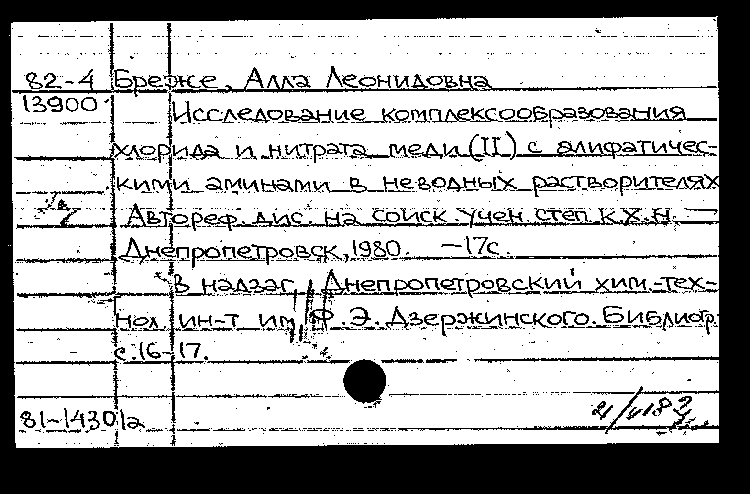 82-4 Бреже, Алла Леонидовна
13900 Исследование комплексообразования
хлорида и нитрата меди (II) с алифатичес-
кими аминами в неводных растворителях
Автореф. дис. на соиск. учен. степ. к.х.н. —
Днепропетровск, 1980. — 17с.
В надзаг. Днепропетровский хим.-тех-
нол. ин-т им. Ф.Э. Дзержинского. Библиогр.
с. 16-17.
81-14301а